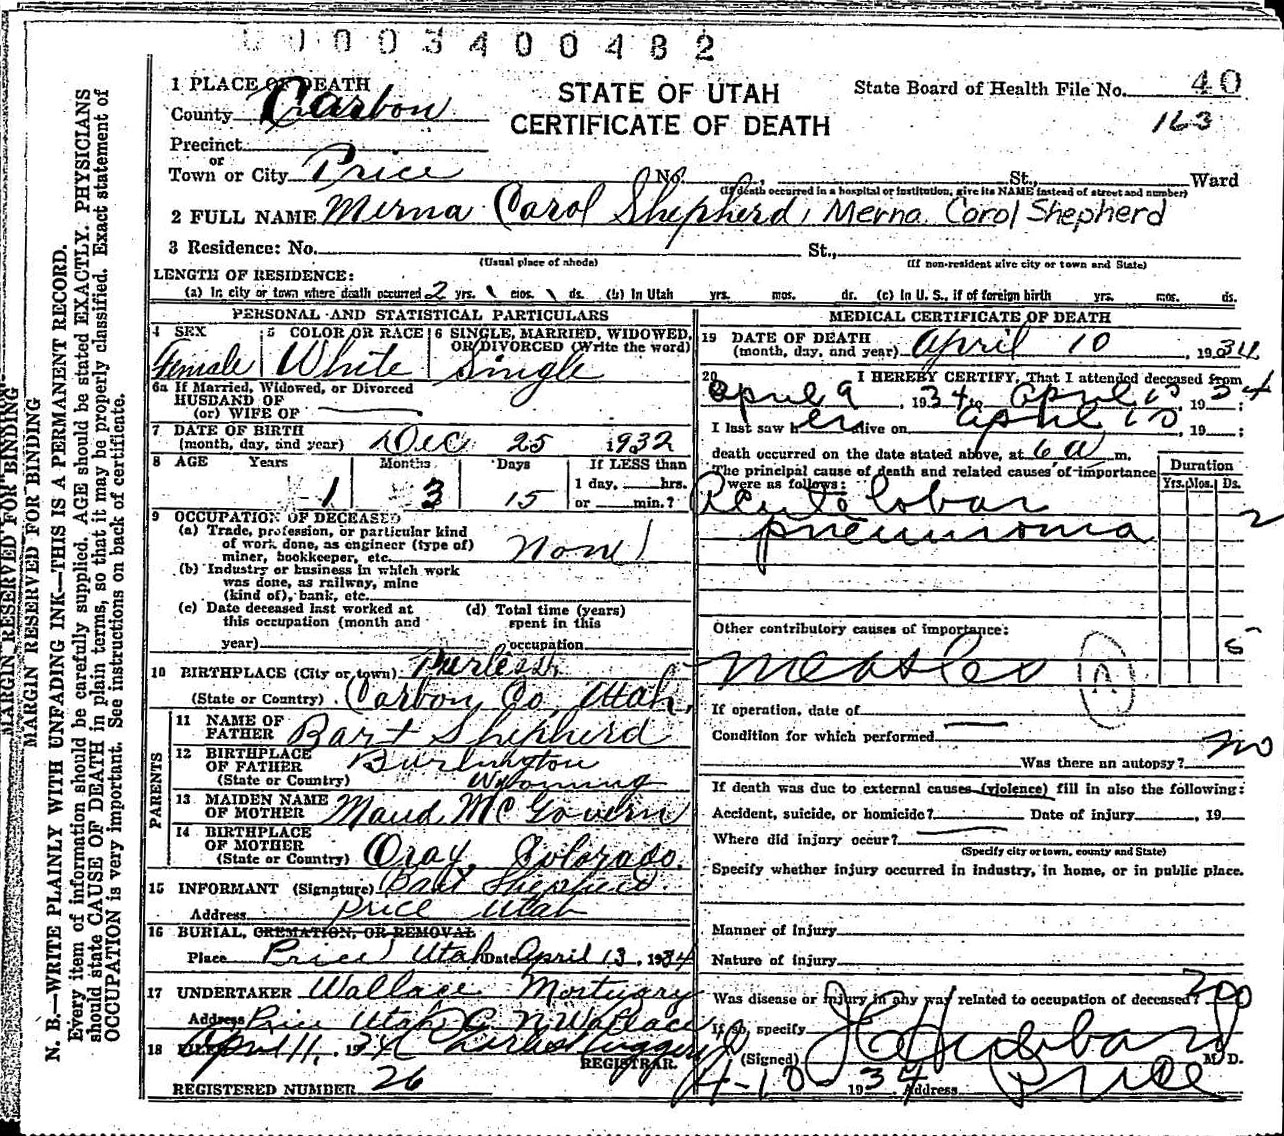 0 1 0 0 3 4 0 0 4 8 2
1 PLACE OF DEATH
STATE OF UTAH
CERTIFICATE OF DEATH
State Board of Health File No. 40
163
County Carbon
Precinct
or
Town or City Price No. , St., Ward
(If death occurred in a hospital or institution, give its NAME instead of street and number)
2 FULL NAME Merna Carol Shepherd, Merna Carol Shepherd
3 Residence: No. St.,
(Usual place of abode) (If non-resident give city or town and State)
LENGTH OF RESIDENCE:
(a) In city or town where death occurred 2 yrs. mos. ds. (b) In Utah yrs. mos. ds. (c) In U. S., if of foreign birth yrs. mos. ds.
PERSONAL AND STATISTICAL PARTICULARS
4 SEX Female
5 COLOR OR RACE White
6 SINGLE, MARRIED, WIDOWED, OR DIVORCED (Write the word) Single
6a If Married, Widowed, or Divorced
HUSBAND OF
(or) WIFE OF
7 DATE OF BIRTH
(month, day, and year) Dec 25 1932
8 AGE Years Months Days If LESS than
1 3 15 1 day, hrs.
or min.?
9 OCCUPATION OF DECEASED
(a) Trade, profession, or particular kind
of work done, as engineer (type of)
miner, bookkeeper, etc. None
(b) Industry or business in which work
was done, as railway, mine
(kind of), bank, etc.
(c) Date deceased last worked at
this occupation (month and
year)
(d) Total time (years)
spent in this
occupation
10 BIRTHPLACE (City or town)
(State or Country) Carbon Co, Utah,
PARENTS
11 NAME OF
FATHER Bart Shepherd
12 BIRTHPLACE
OF FATHER Burlington
(State or Country) Wyoming
13 MAIDEN NAME
OF MOTHER Maud McGovern
14 BIRTHPLACE
OF MOTHER
(State or Country) Oray, Colorado.
15 INFORMANT (Signature) Bart Shepherd
Address Price Utah
16 BURIAL, CREMATION, OR REMOVAL
Place Price Utah Date April 13, 1934
17 UNDERTAKER Wallace Mortuary
Address Price Utah G N Wallace
18 FILED April 11, 1934
REGISTRAR.
REGISTERED NUMBER 26
MEDICAL CERTIFICATE OF DEATH
19 DATE OF DEATH
(month, day, and year) April 10, 1934
20 I HEREBY CERTIFY, That I attended deceased from
April 9 1934 to April 10, 1934;
I last saw her alive on April 10, 19 ;
death occurred on the date stated above, at 6 a m.
The principal cause of death and related causes of importance
were as follows:
Duration
Yrs. Mos. Ds.
Acute lobar
pneumonia 2
Other contributory causes of importance:
Measles 5
If operation, date of
Condition for which performed
Was there an autopsy? no
If death was due to external causes (violence) fill in also the following:
Accident, suicide, or homicide? Date of injury , 19
Where did injury occur?
(Specify city or town, county and State)
Specify whether injury occurred in industry, in home, or in public place.
Manner of Injury
Nature of injury
Was disease or injury in any way related to occupation of deceased? no
If so, specify
(Signed) Hubbard M. D.
4-10-1934 Address Price
MARGIN RESERVED FOR BINDING
MARGIN RESERVED FOR BINDING
N. B.—WRITE PLAINLY WITH UNFADING INK—THIS IS A PERMANENT RECORD.
Every item of information should be carefully supplied. AGE should be stated EXACTLY. PHYSICIANS
should state CAUSE OF DEATH in plain terms, so that it may be properly classified. Exact statement of
OCCUPATION is very important. See instructions on back of certificate.